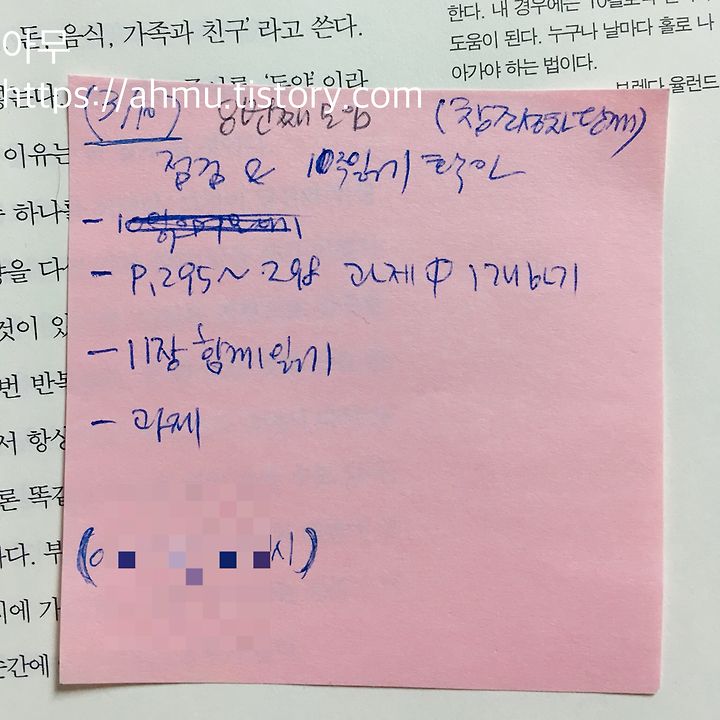 , 돈, 음식, 가족과 친구' 라고 쓴다.
한다. 내 경우에는
도움이 된다. 누구나 날마다 홀로 나
아가야 하는 법이다.
브렌다 율런드
아무
https://ahmu.tistory.com
이유는
(3/10) 8번째 모임
점검 & 10주읽기 확인
- P.295~298 과제 中 1개 하기
- 11장 함께 읽기
- 과제
시)
하나를
을 다
것이 있
번 반복
서 항상
론 똑같
다. 부
에 가
순간에